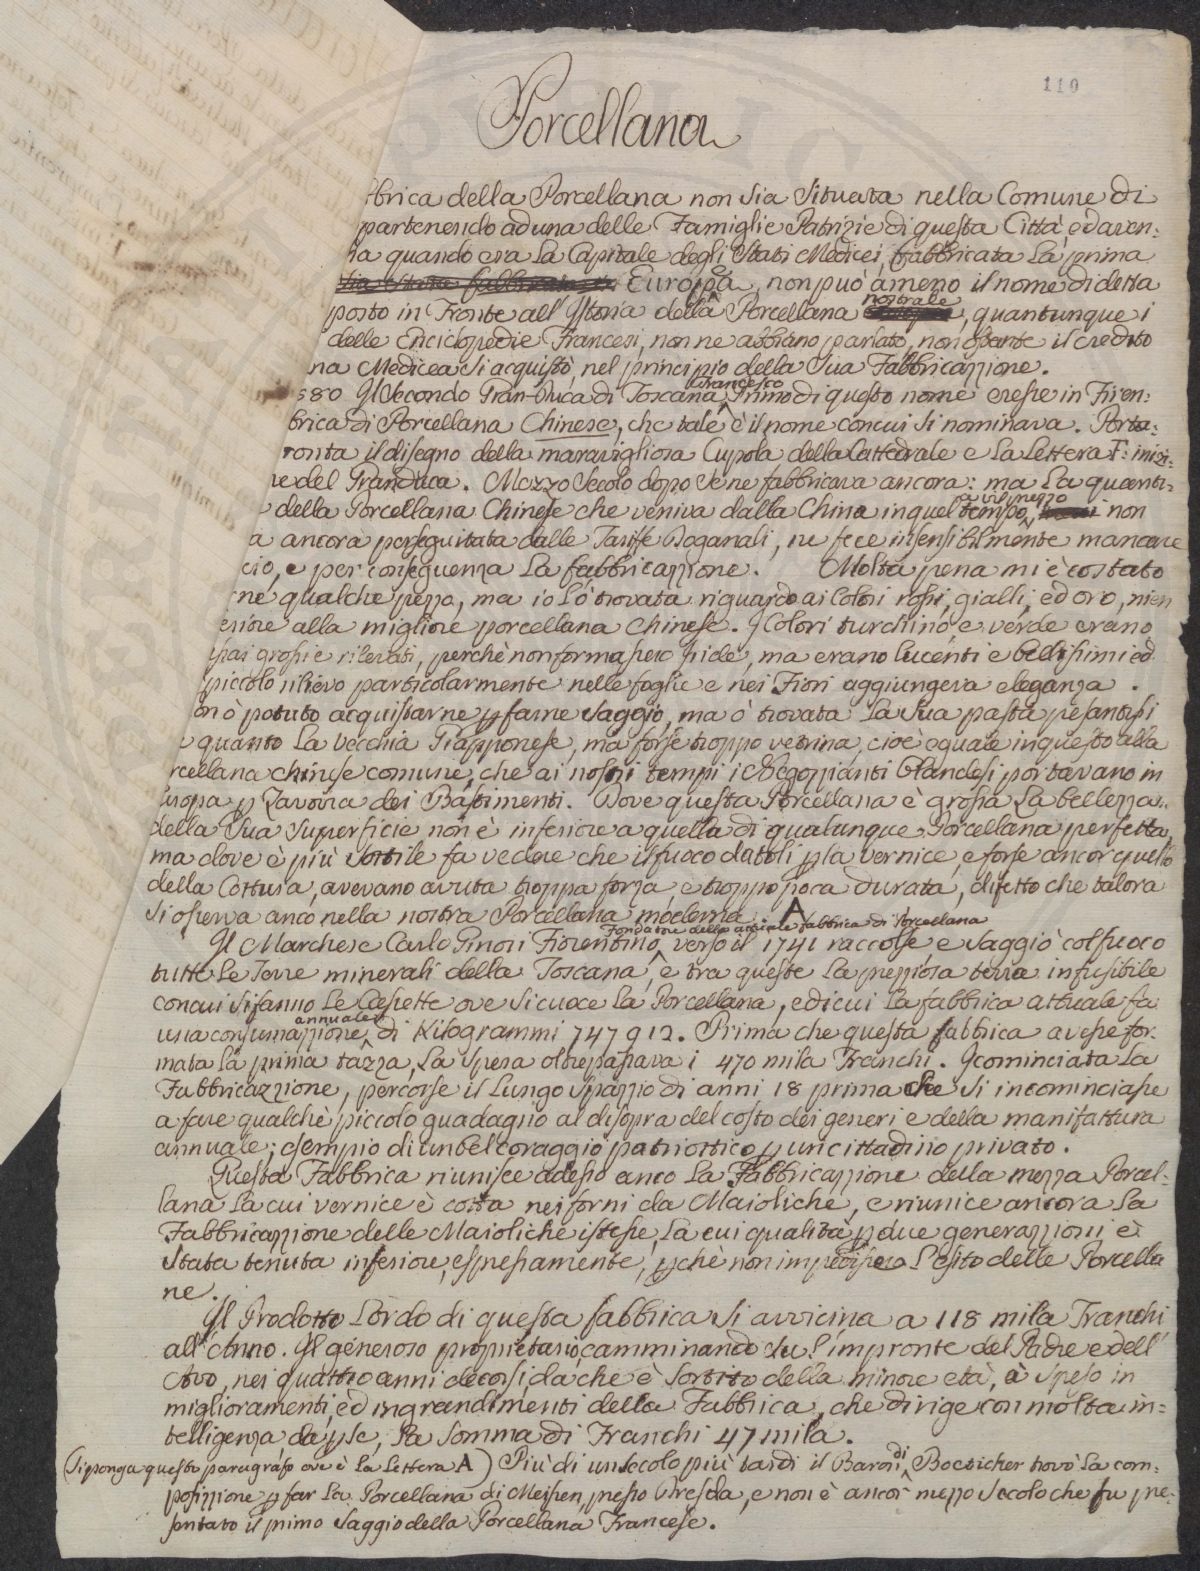 110
Porcellana
brica della Porcellana non sia situata nella Comune di
partenendo ad una delle Famiglie Patrizie di questa Città, ed aven-
na quando era la Capitale degli Stati Medicei, fabbricata la prima
Europea, non può ameno il nome di detta
posto in Fronte all'Istoria della Porcellana nostrale, quantunque i
delle Enciclopedie Francesi, non ne abbiano parlato, non ostante il credito
na Medicea si acquistò, nel principio della sua Fabbricazzione.
580 Il Secondo Gran-Duca di Toscana Francesco Primo di questo nome eresse in Firen-
brica di Porcellana Chinese, che tale è il nome con cui si nominava. Porta-
ronta il disegno della maravigliosa Cupola della Cattedrale e la Lettera F. inizi-
ne del Granduca. Mezzo Secolo dopo se ne fabbricava ancora: ma la quanti-
della Porcellana Chinese che veniva dalla China in quel tempo a vil prezzo non
a ancora perseguitata dalle Tariffe Doganali, ne fece insensibilmente mancare
cio, e per conseguenza la fabbricazzione. Molta pena mi è costato
ne qualche pezzo, ma io l'ò trovata riguardo ai Colori rossi, gialli, ed oro, nien
eriore alla migliore porcellana Chinese. I Colori turchino, e verde erano
grossi e rilevati, perchè non formassero pide, ma erano lucenti e bellissimi ed
piccolo rilievo particolarmente nelle foglie e nei Fiori aggiungeva eleganza.
on ò potuto acquistarne p farne saggio, ma ò trovata la sua pasta pesantissi
quanto la vecchia Giapponese, ma forse troppo vetrina, cioè eguale in questo alla
rcellana chinese comune, che ai nostri tempi i Negozzianti Olandesi portavano in
uropa p Zavorra dei Bastimenti. Dove questa Porcellana è grossa la bellezza
della sua superficie non è inferiore a quella di qualunque Porcellana perfetta,
ma dove è più sottile fa vedere che il fuoco datoli p la vernice, e forse ancor quello
della Cottura, avevano avuta troppa forza e troppo poca durata, difetto che talora
si osserva anco nella nostra Porcellana moderna. A
Fondatore della attuale fabbrica di Porcellana
Il Marchese Carlo Ginori Fiorentino, verso il 1741 raccolse e saggiò col fuoco
tutte le Terre minerali della Toscana, e tra queste la prezziosa terra infusibile
con cui si fanno le Casette ove si cuoce la Porcellana, e di cui la fabbrica attuale fa
una consumazzione annuale di Kilogrammi 747912. Prima che questa fabbrica avesse for-
mata la prima tazza, la spesa oltrepassava i 470 mila Franchi. Icominciata la
Fabbricazzione, percorse il lungo spazzio di anni 18 prima che si incominciasse
a fare qualche piccolo guadagno al disopra del costo dei generi e della manifattura
annuale; esempio di un bel coraggio patriottico p un cittadino privato.
Questa Fabbrica riunisce adesso anco la Fabbricazzione della mezza Porcel-
lana la cui vernice è cotta nei forni da Maioliche, e riunice ancora la
Fabbricazzione delle Maioliche istesse, la cui qualità p due generazzioni, è
stata tenuta inferiore, espressamente, pchè non impedissero l'esito delle Porcella
ne.
Il Prodotto Lordo di questa fabbrica si avvicina a 118 mila Franchi
all'Anno. Il generoso proprietario, camminando su l'impronte del Padre e dell'
Avo, nei quattro anni decorsi, da che è sortito della minore età, à speso in
miglioramenti, ed ingrandimenti della Fabbrica, che dirige con molta in-
telligenza da p se, la somma di Franchi 47 mila.
(Si ponga questo paragrafo ove è la Lettera A) Più di un secolo più tardi il Baron di Boeticher trovò la com-
posizzione p far la Porcellana di Meissen, presso Dresda, e non è ancor mezzo secolo che fu pre-
sentato il primo saggio della Porcellana Francese.